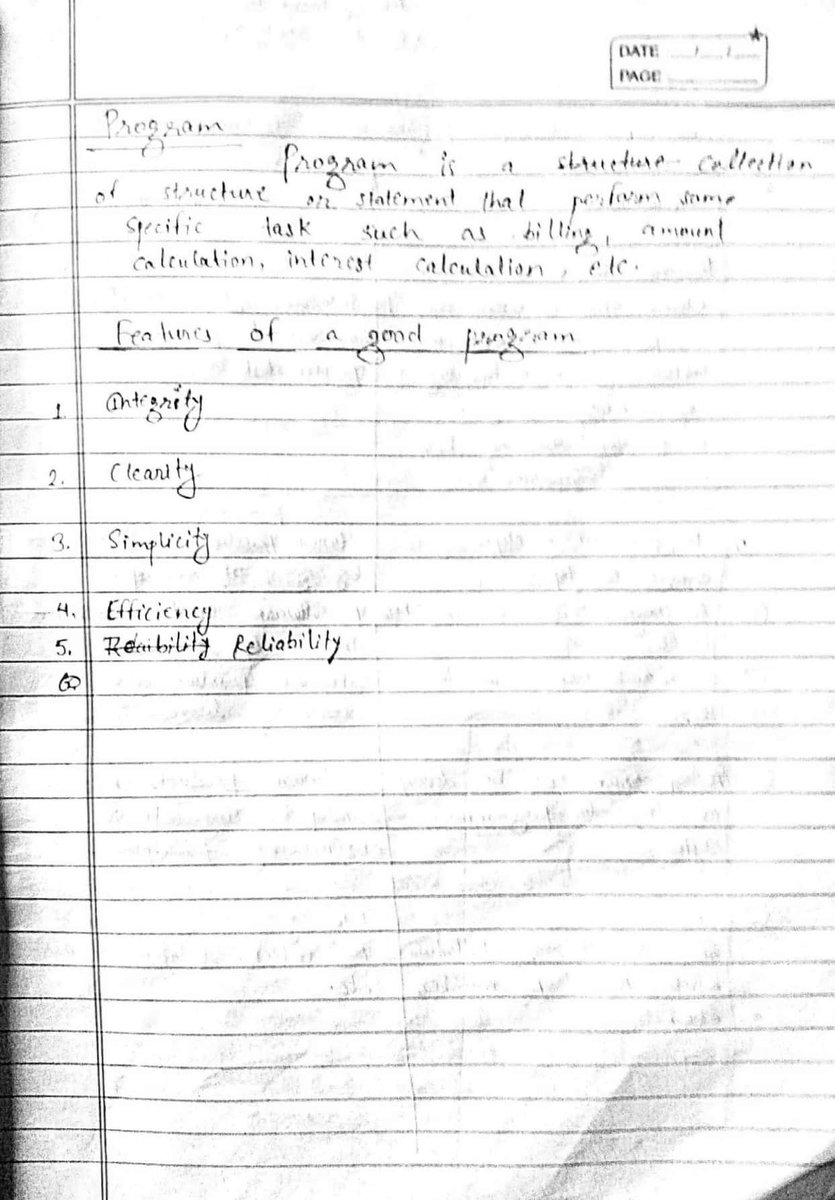 DATE
PAGE
Program
Program is a structure collection
of structure or statement that perform some
specific task such as billing, amount
calculation, interest calculation, etc.
Features of a good program
1. Integrity
2. Clearity
3. Simplicity
4. Efficiency
5. Reliability